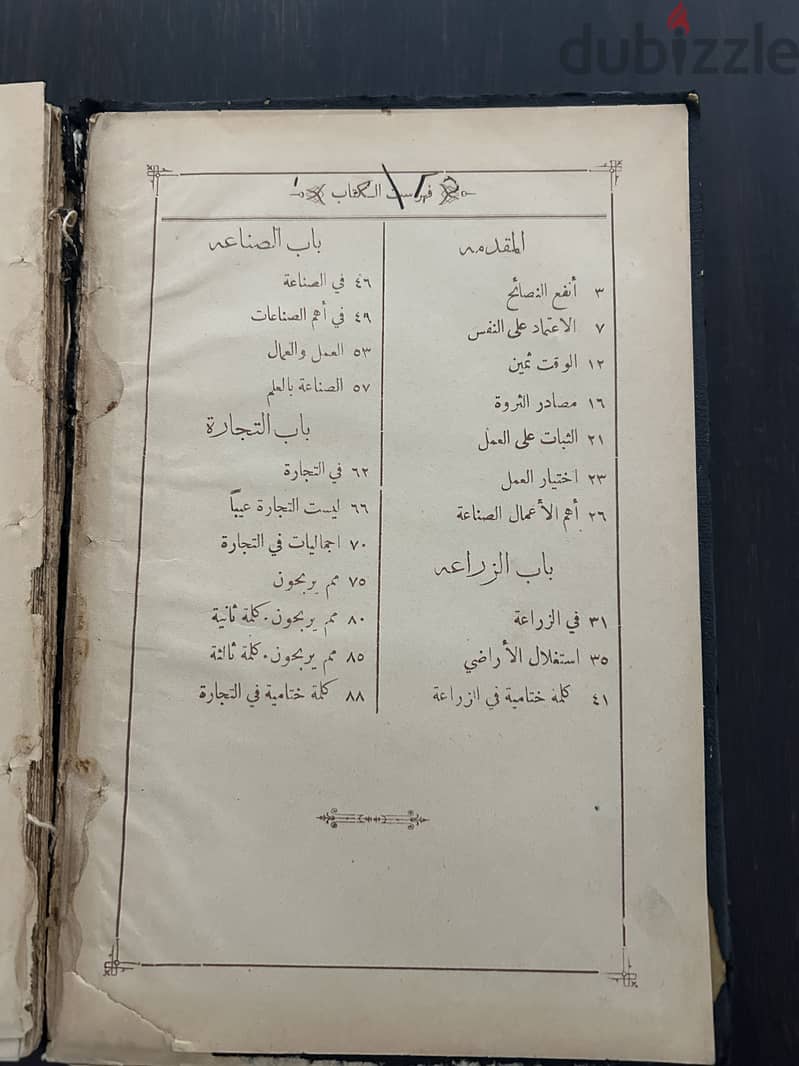 dubizzle
فهرست الكتاب
المقدمه
٣ أنفع النصائح
٧ الاعتماد على النفس
١٢ الوقت ثمين
١٦ مصادر الثروة
٢١ الثبات على العمل
٢٣ اختيار العمل
٢٦ أهم الأعمال الصناعة
باب الزراعه
٣١ في الزراعة
٣٥ استغلال الأراضي
٤١ كلمة ختامية في الزراعة
باب الصناعه
٤٦ في الصناعة
٤٩ في أهم الصناعات
٥٣ العمل والعمال
٥٧ الصناعة بالعلم
باب التجارة
٦٢ في التجارة
٦٦ ليست التجارة عيباً
٧٠ اجماليات في التجارة
٧٥ مم يربحون
٨٠ مم يربحون. كلمة ثانية
٨٥ مم يربحون. كلمة ثالثة
٨٨ كلمة ختامية في التجارة